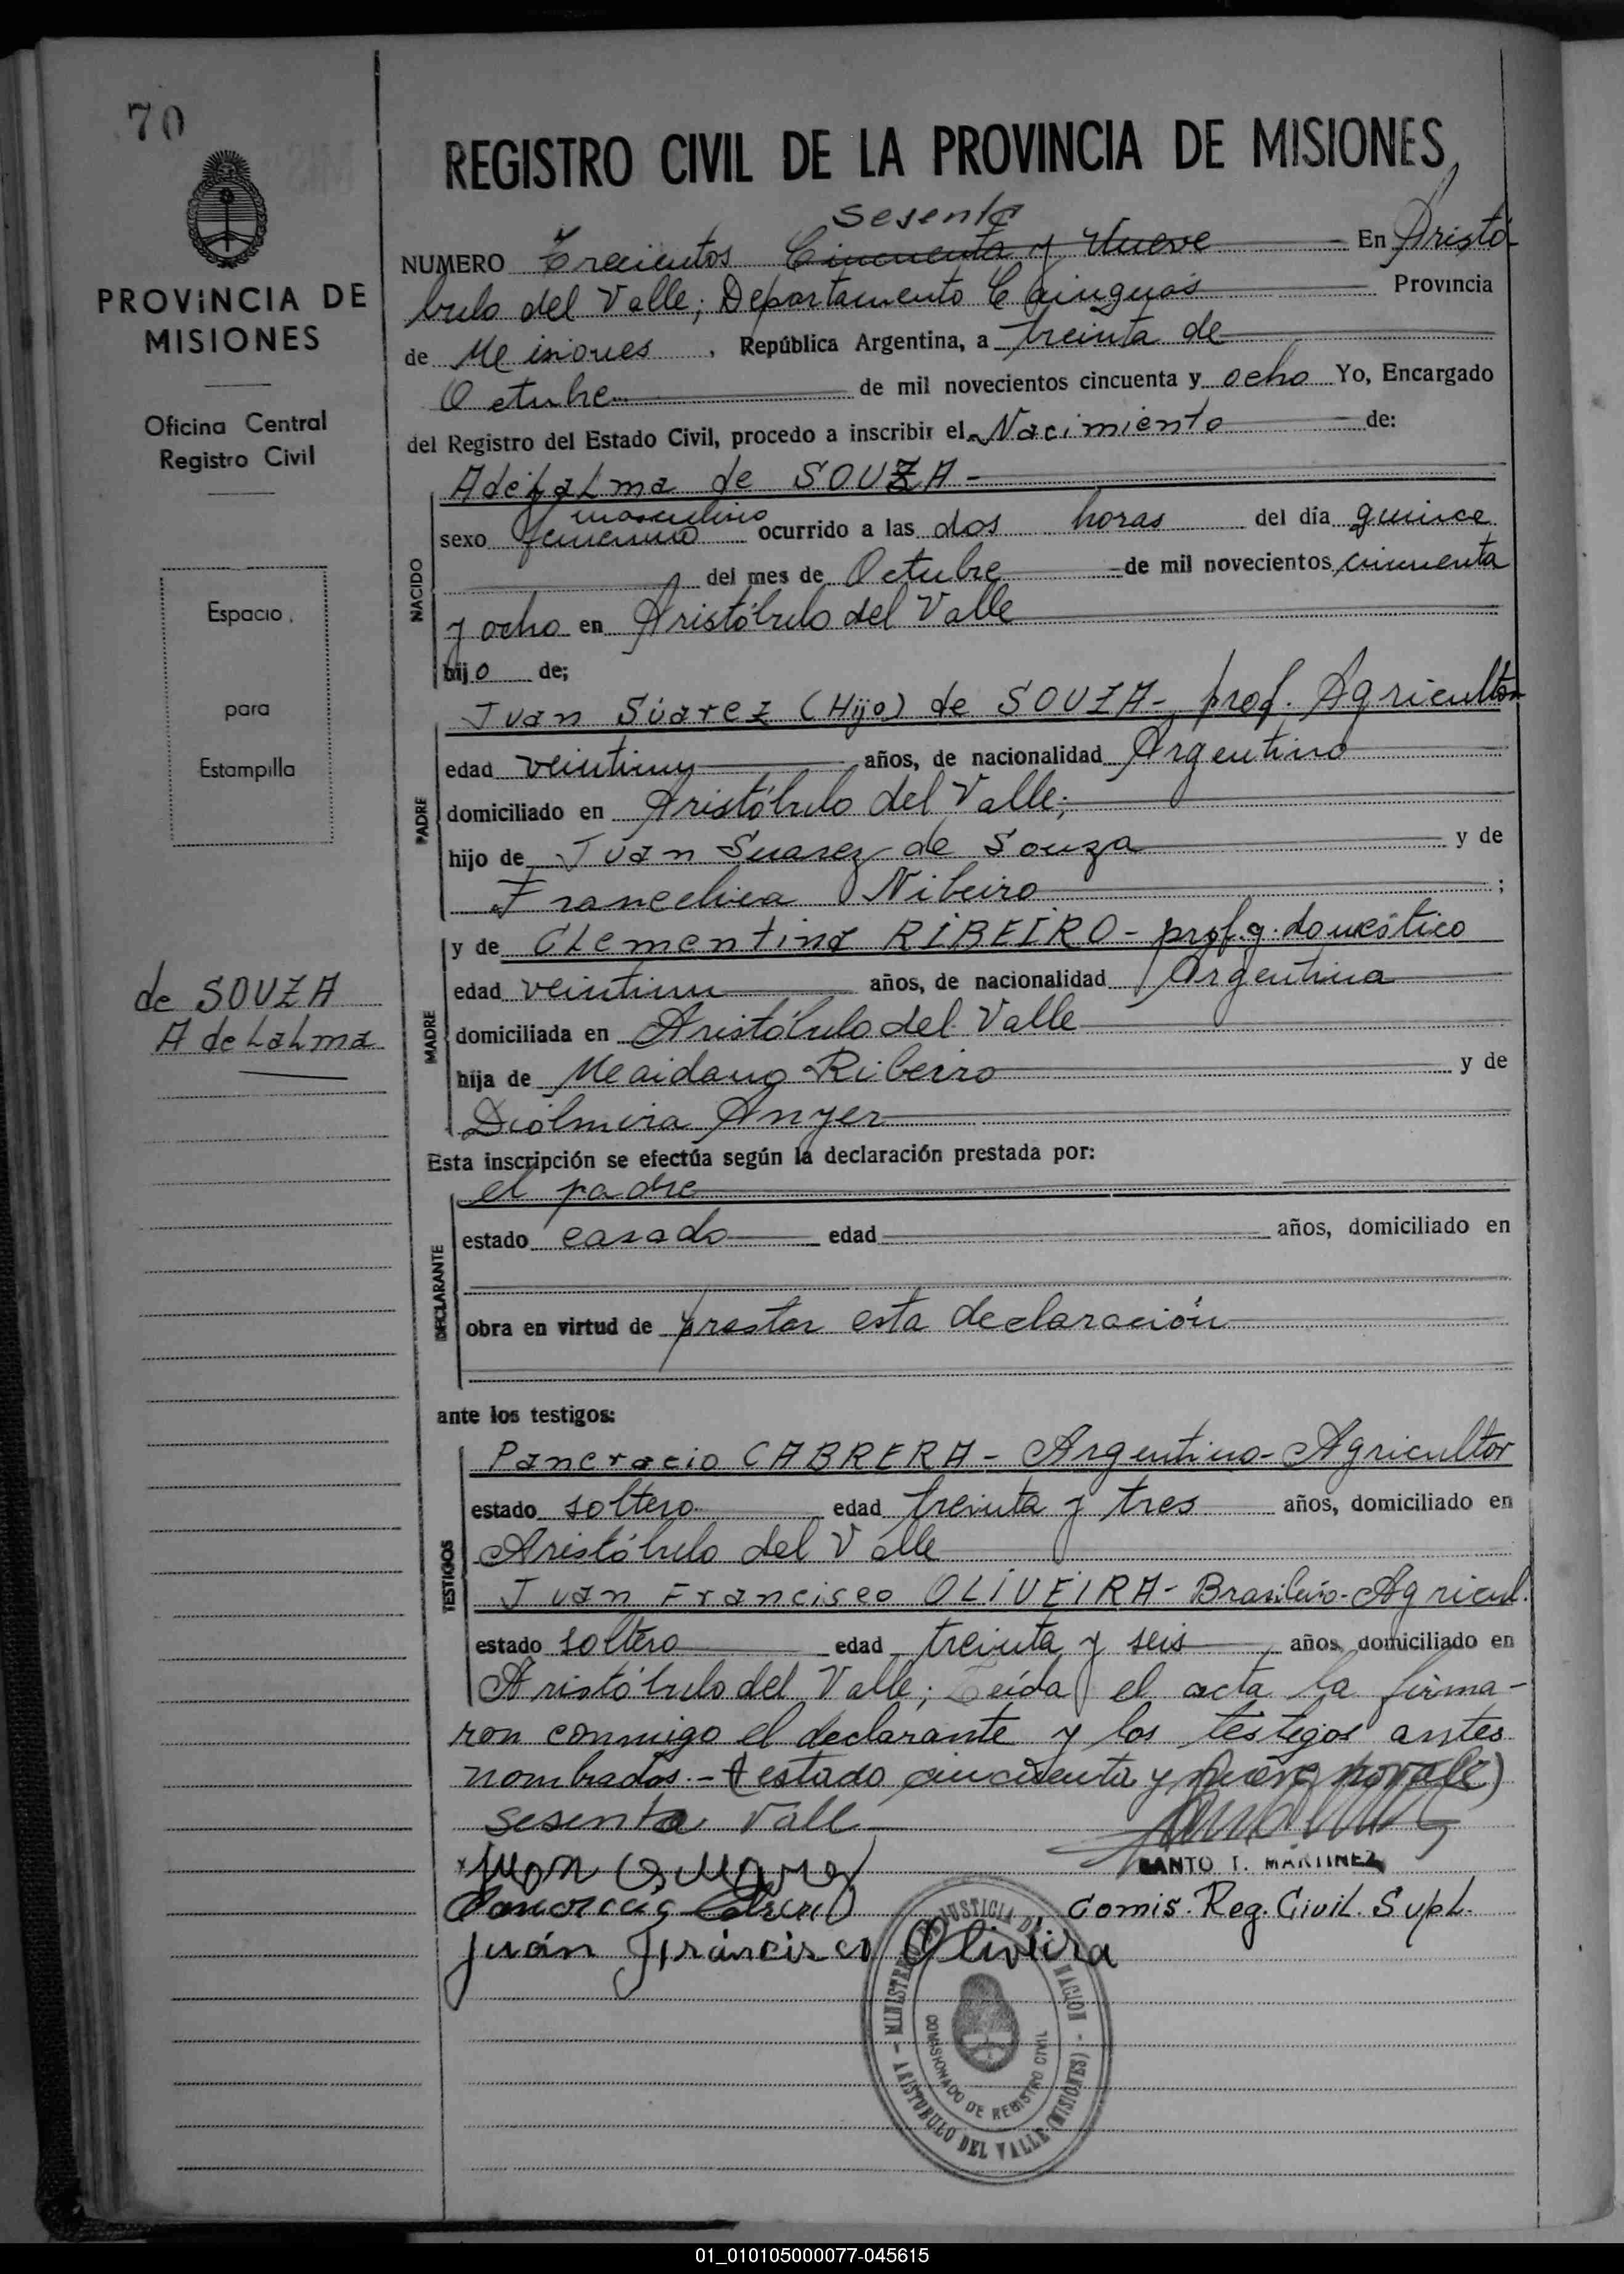 70
REGISTRO CIVIL DE LA PROVINCIA DE MISIONES
PROVINCIA DE
MISIONES
Oficina Central
Registro Civil
Espacio
para
Estampilla
de SOUZA
Adelalma
sesenta
NUMERO Trecientos Cincuenta y Nueve En Aristó
bulo del Valle; Departamento Cainguás Provincia
de Misiones, República Argentina, a treinta de
Octubre de mil novecientos cincuenta y ocho Yo, Encargado
del Registro del Estado Civil, procedo a inscribir el Nacimiento de:
NACIDO
Adelalma de SOUZA -
masculino
sexo femenino ocurrido a las dos horas del día quince
del mes de Octubre de mil novecientos cincuenta
y ocho en Aristóbulo del Valle
hijo de;
PADRE
Juan Súarez (Hijo) de SOUZA - prof. Agricultor
edad veintiun años, de nacionalidad Argentino
domiciliado en Aristóbulo del Valle;
hijo de Juan Suarez de Souza y de
Francelina Nibeiro ;
MADRE
y de Clementina RIBEIRO - prof. q. doméstico
edad veintiun años, de nacionalidad Argentina
domiciliada en Aristóbulo del Valle
hija de Ribeiro y de
Anyer
Esta inscripción se efectúa según la declaración prestada por:
DECLARANTE
el padre
estado casado edad años, domiciliado en
obra en virtud de prestar esta declaración
ante los testigos:
TESTIGOS
Pancracio CABRERA - Argentino - Agricultor
estado soltero edad treinta y tres años, domiciliado en
Aristóbulo del Valle
Juan Francisco OLIVEIRA - Brasileño - Agricul.
estado soltero edad treinta y seis años, domiciliado en
Aristóbulo del Valle; Leída el acta la firma-
ron conmigo el declarante y los testigos antes
nombrados. - (testado cincuenta y nueve no vale)
sesenta Vall
SANTO T. MARTINEZ
Comis. Reg. Civil. Supl.
Juan Francisco Oliveira
MINISTERIO DE JUSTICIA DE LA NACION - ARISTOBULO DEL VALLE (MISIONES) -
COMISIONADO DE REGISTRO CIVIL
01_010105000077-045615